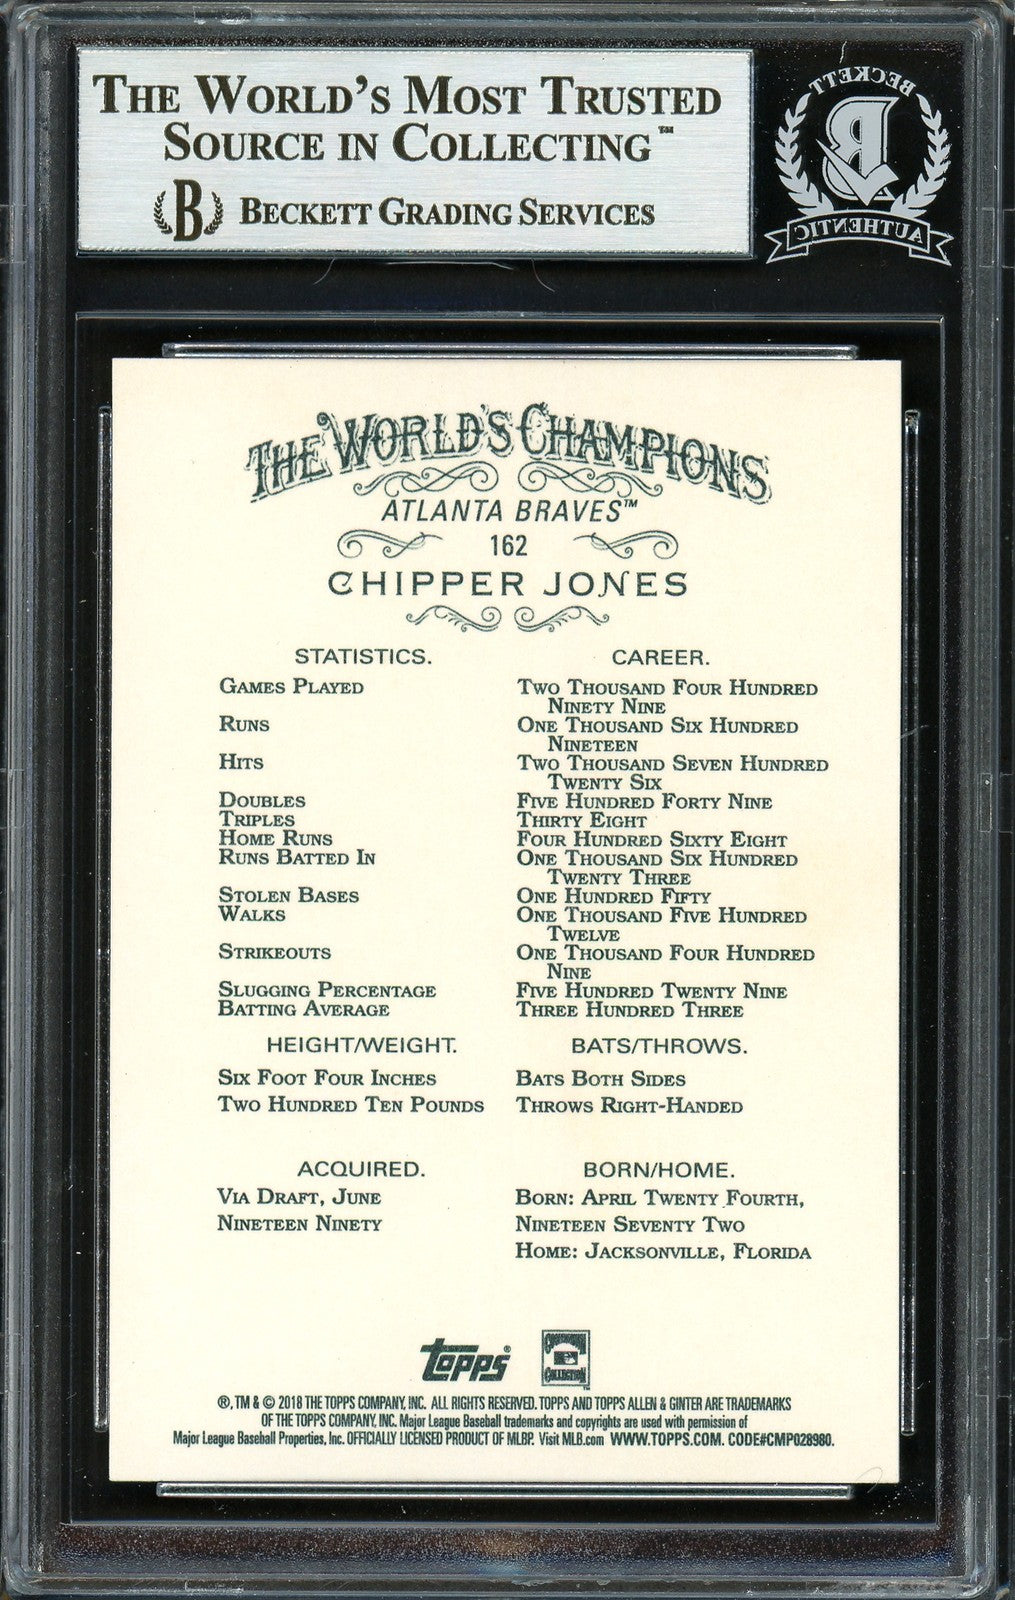 THE WORLD'S MOST TRUSTED
SOURCE IN COLLECTING™
B BECKETT GRADING SERVICES
BECKETT
B
AUTHENTIC
THE WORLD'S CHAMPIONS
ATLANTA BRAVES™
162
CHIPPER JONES
STATISTICS. CAREER.
GAMES PLAYED TWO THOUSAND FOUR HUNDRED
NINETY NINE
RUNS ONE THOUSAND SIX HUNDRED
NINETEEN
HITS TWO THOUSAND SEVEN HUNDRED
TWENTY SIX
DOUBLES FIVE HUNDRED FORTY NINE
TRIPLES THIRTY EIGHT
HOME RUNS FOUR HUNDRED SIXTY EIGHT
RUNS BATTED IN ONE THOUSAND SIX HUNDRED
TWENTY THREE
STOLEN BASES ONE HUNDRED FIFTY
WALKS ONE THOUSAND FIVE HUNDRED
TWELVE
STRIKEOUTS ONE THOUSAND FOUR HUNDRED
NINE
SLUGGING PERCENTAGE FIVE HUNDRED TWENTY NINE
BATTING AVERAGE THREE HUNDRED THREE
HEIGHT/WEIGHT. BATS/THROWS.
SIX FOOT FOUR INCHES BATS BOTH SIDES
TWO HUNDRED TEN POUNDS THROWS RIGHT-HANDED
ACQUIRED. BORN/HOME.
VIA DRAFT, JUNE BORN: APRIL TWENTY FOURTH,
NINETEEN NINETY NINETEEN SEVENTY TWO
HOME: JACKSONVILLE, FLORIDA
topps®
COOPERSTOWN
COLLECTION™
®, TM & © 2018 THE TOPPS COMPANY, INC. ALL RIGHTS RESERVED. TOPPS AND TOPPS ALLEN & GINTER ARE TRADEMARKS
OF THE TOPPS COMPANY, INC. Major League Baseball trademarks and copyrights are used with permission of
Major League Baseball Properties, Inc. OFFICIALLY LICENSED PRODUCT OF MLBP. Visit MLB.com WWW.TOPPS.COM. CODE#CMP028980.